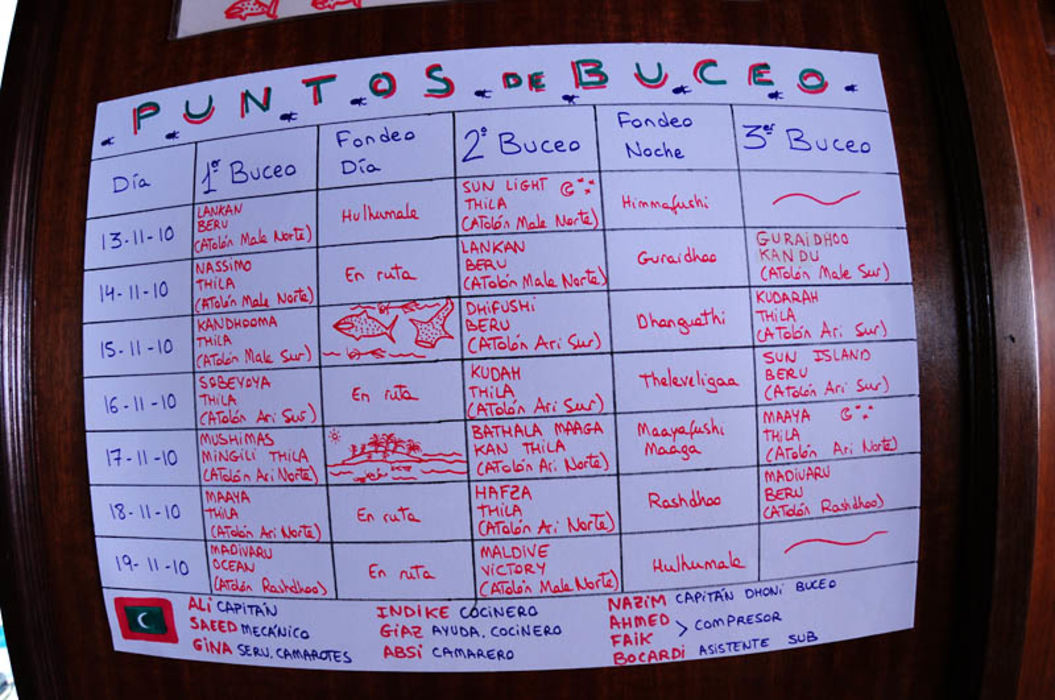 PUNTOS DE BUCEO
Día
1er Buceo
Fondeo
Día
2º Buceo
Fondeo
Noche
3er Buceo
13-11-10
LANKAN
BERU
(ATolón Male Norte)
Hulhumale
SUN LIGHT
THILA
(ATolón Male Norte)
Himmafushi
14-11-10
NASSIMO
THILA
(ATolón Male Norte)
En ruta
LANKAN
BERU
(ATolón Male Norte)
Guraidhoo
GURAIDHOO
KANDU
(ATolón Male Sur)
15-11-10
KANDHOOMA
THILA
(ATolón Male Sur)
DHIFUSHI
BERU
(ATolón Ari Sur)
Dhanguethi
KUDARAH
THILA
(ATolón Ari Sur)
16-11-10
SOBEYOYA
THILA
(ATolón Ari Sur)
En ruta
KUDAH
THILA
(ATolón Ari Sur)
Theleveligaa
SUN ISLAND
BERU
(ATolón Ari Sur)
17-11-10
MUSHIMAS
MINGILI THILA
(ATolón Ari Norte)
BATHALA MAAGA
KAN THILA
(ATolón Ari Norte)
Maayafushi
Maaga
MAAYA
THILA
(ATolón Ari Norte)
18-11-10
MAAYA
THILA
(ATolón Ari Norte)
En ruta
HAFZA
THILA
(ATolón Ari Norte)
Rashdhoo
MADIVARU
BERU
(ATolón Rashdhoo)
19-11-10
MADIVARU
OCEAN
(ATolón Rashdhoo)
En ruta
MALDIVE
VICTORY
(ATolón Male Norte)
Hulhumale
ALI CAPITÁN
SAEED MECÁNICO
GINA SERV. CAMAROTES
INDIKE COCINERO
GIAZ AYUDA. COCINERO
ABSI CAMARERO
NAZIM CAPITÁN DHONI BUCEO
AHMED
FAIK > COMPRESOR
BOCARDI ASISTENTE SUB